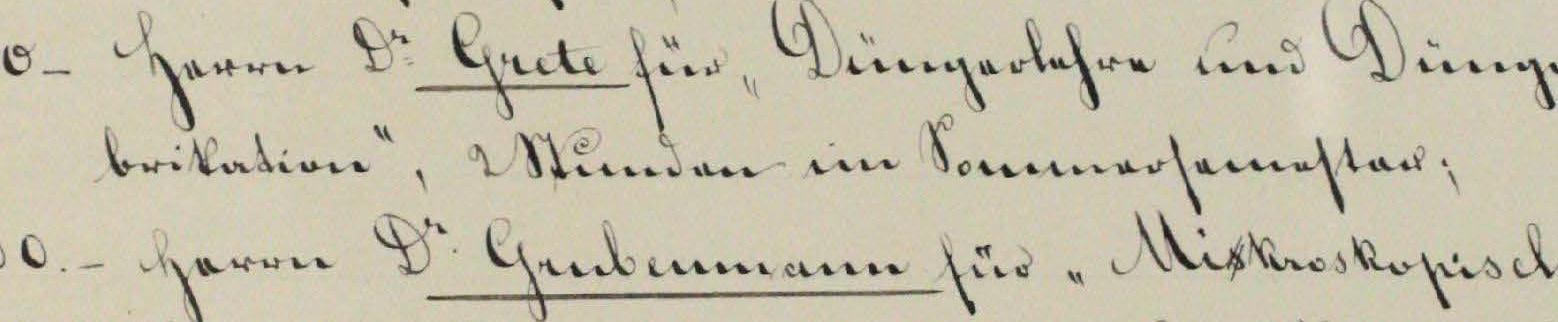 0– Herrn Dr. Grete für „Düngerlehre und Dünge
brikation“, 2 Stunden im Sommersemester;
00.– Herrn Dr. Grubenmann für „Mikroskopisch